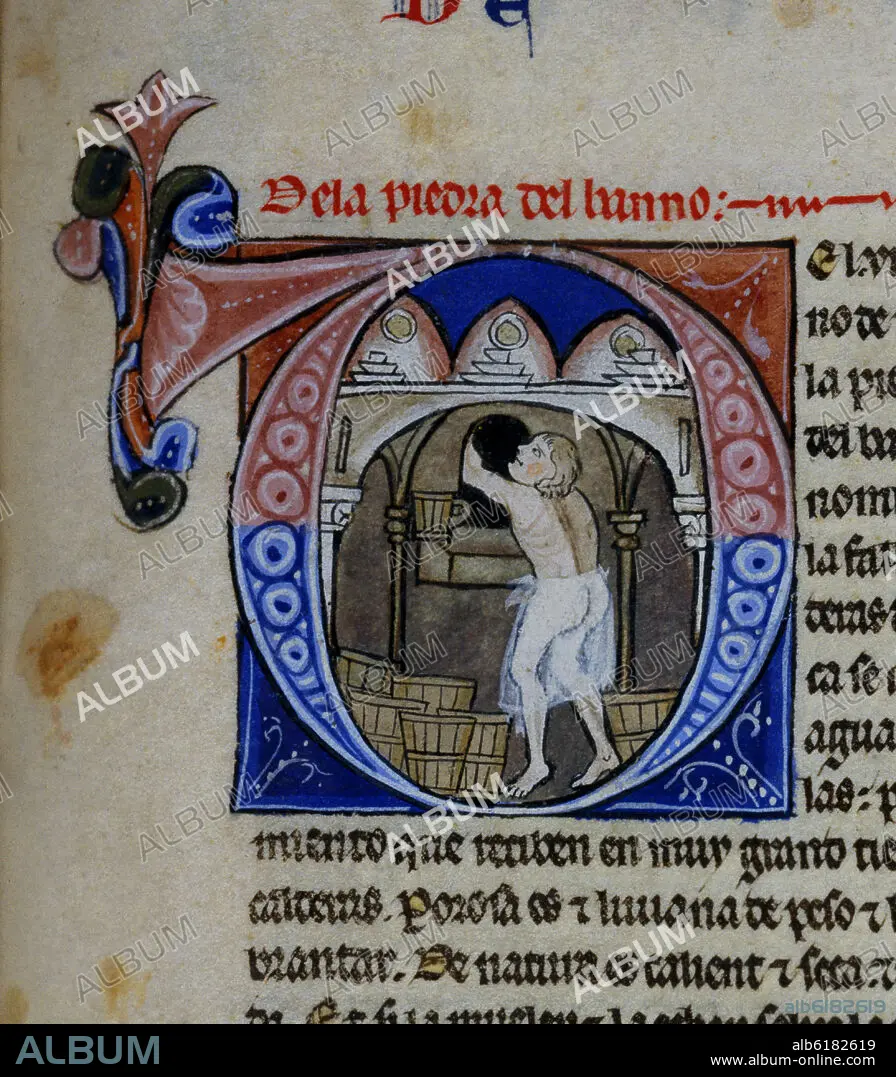 De
De la piedra del banno:
El
no de
la pie
del ba
nom
la fa
deras
ca se
agua
las: p
miento que reciben en muy grand tie
calderas. Porosa es ⁊ liuiana de peso ⁊
brantar. De natura es calient ⁊ seca. ⁊
ALBUM
alb6182619
ALBUM
alb6182619
www.album-online.com